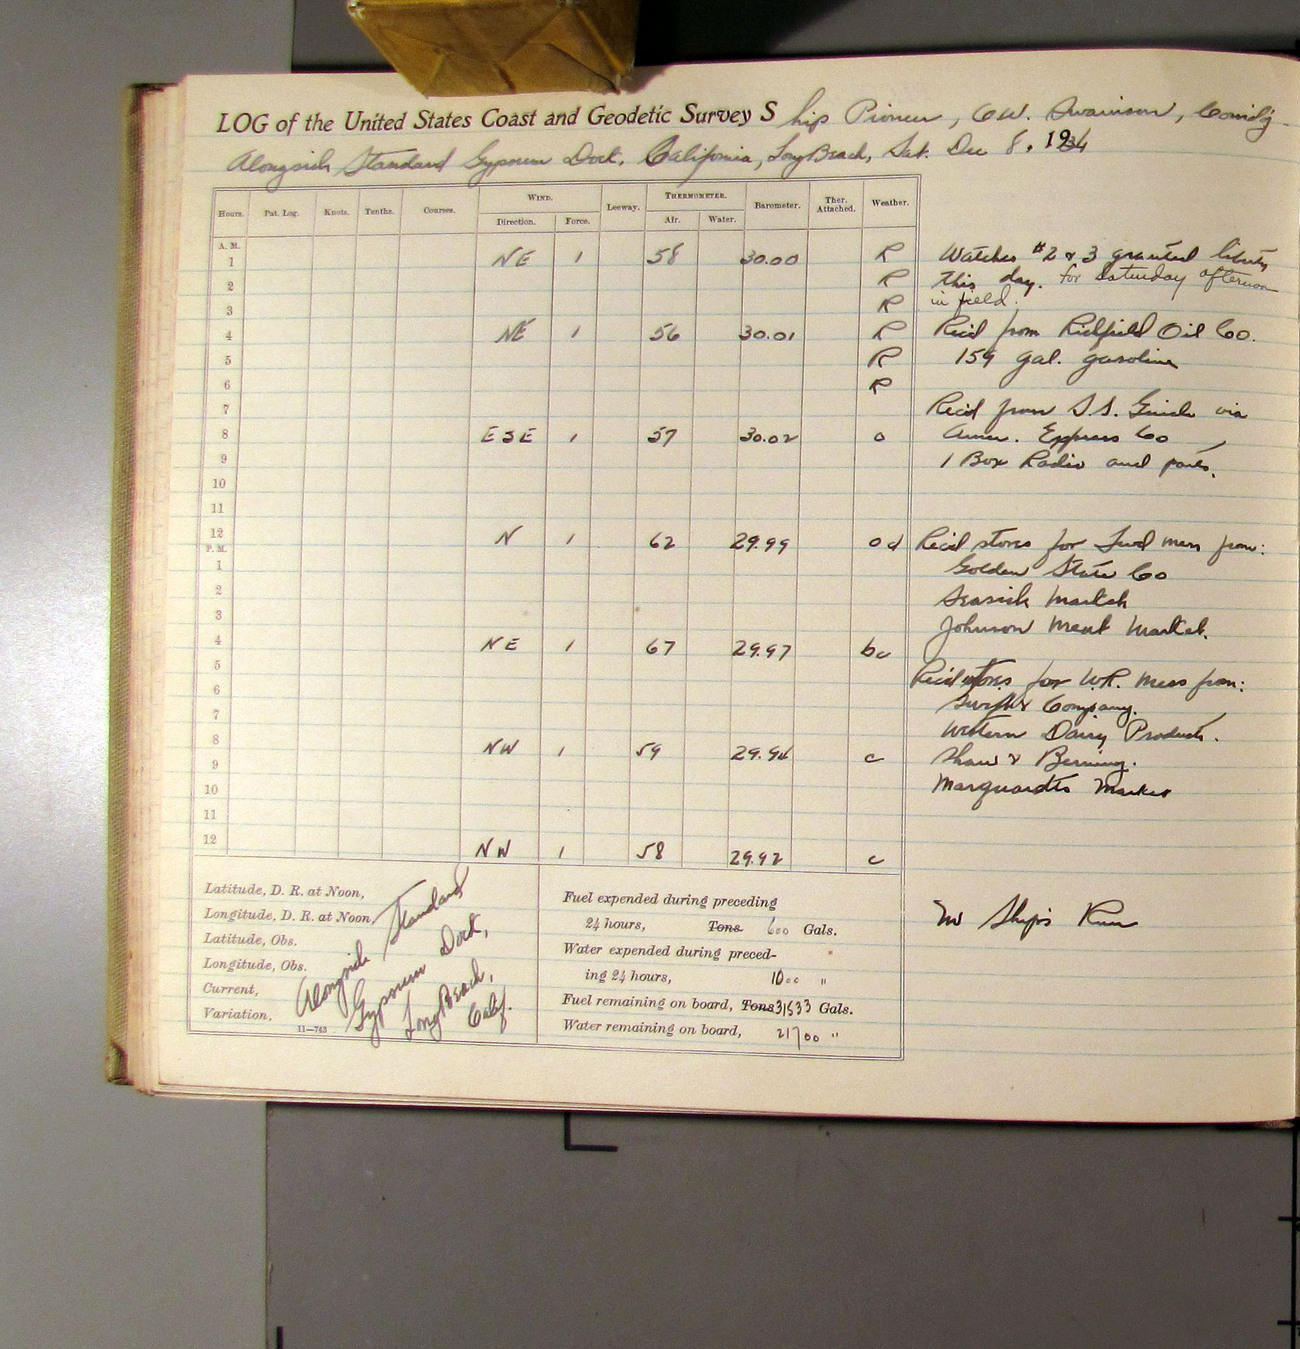 LOG of the United States Coast and Geodetic Survey Ship Pioneer, O.W. Swainson, Comd'g
Alongside Standard Gypsum Dock, California, Long Beach, Sat. Dec 8, 1934
Hours. Pat. Log. Knots. Tenths. Courses. WIND. Direction. Force. Leeway. THERMOMETER. Air. Water. Barometer. Ther. Attached. Weather.
A. M.
1 NE 1 58 30.00 R Watches #2 & 3 granted liberty
2 R this day. for Saturday afternoon
3 R in field.
4 NE 1 56 30.01 R Rec'd from Richfield Oil Co.
5 R 159 gal. gasoline
6 R
7 Rec'd from S.S. via
8 ESE 1 57 30.02 o Amer. Express Co,
9 1 Box Radio and parts.
10
11
12 N 1 62 29.99 od Rec'd stores for Fwd mess from:
P. M.
1 Golden State Co
2 Market
3 Johnson Meat Market.
4 NE 1 67 29.97 bc
5 Rec'd stores for W.R. mess from:
6 Swift & Company.
7 Western Dairy Products.
8 NW 1 59 29.94 c Shaw & Berning.
9 Marquardts Market
10
11
12 NW 1 58 29.92 c
Latitude, D. R. at Noon,
Longitude, D. R. at Noon,
Latitude, Obs.
Longitude, Obs.
Current,
Variation,
11—763
Alongside Standard
Gypsum Dock,
Long Beach,
Calif.
Fuel expended during preceding
24 hours, Tons 600 Gals.
Water expended during preced-
ing 24 hours, 1000 "
Fuel remaining on board, Tons 31533 Gals.
Water remaining on board, 21700 "
No Ship's Run